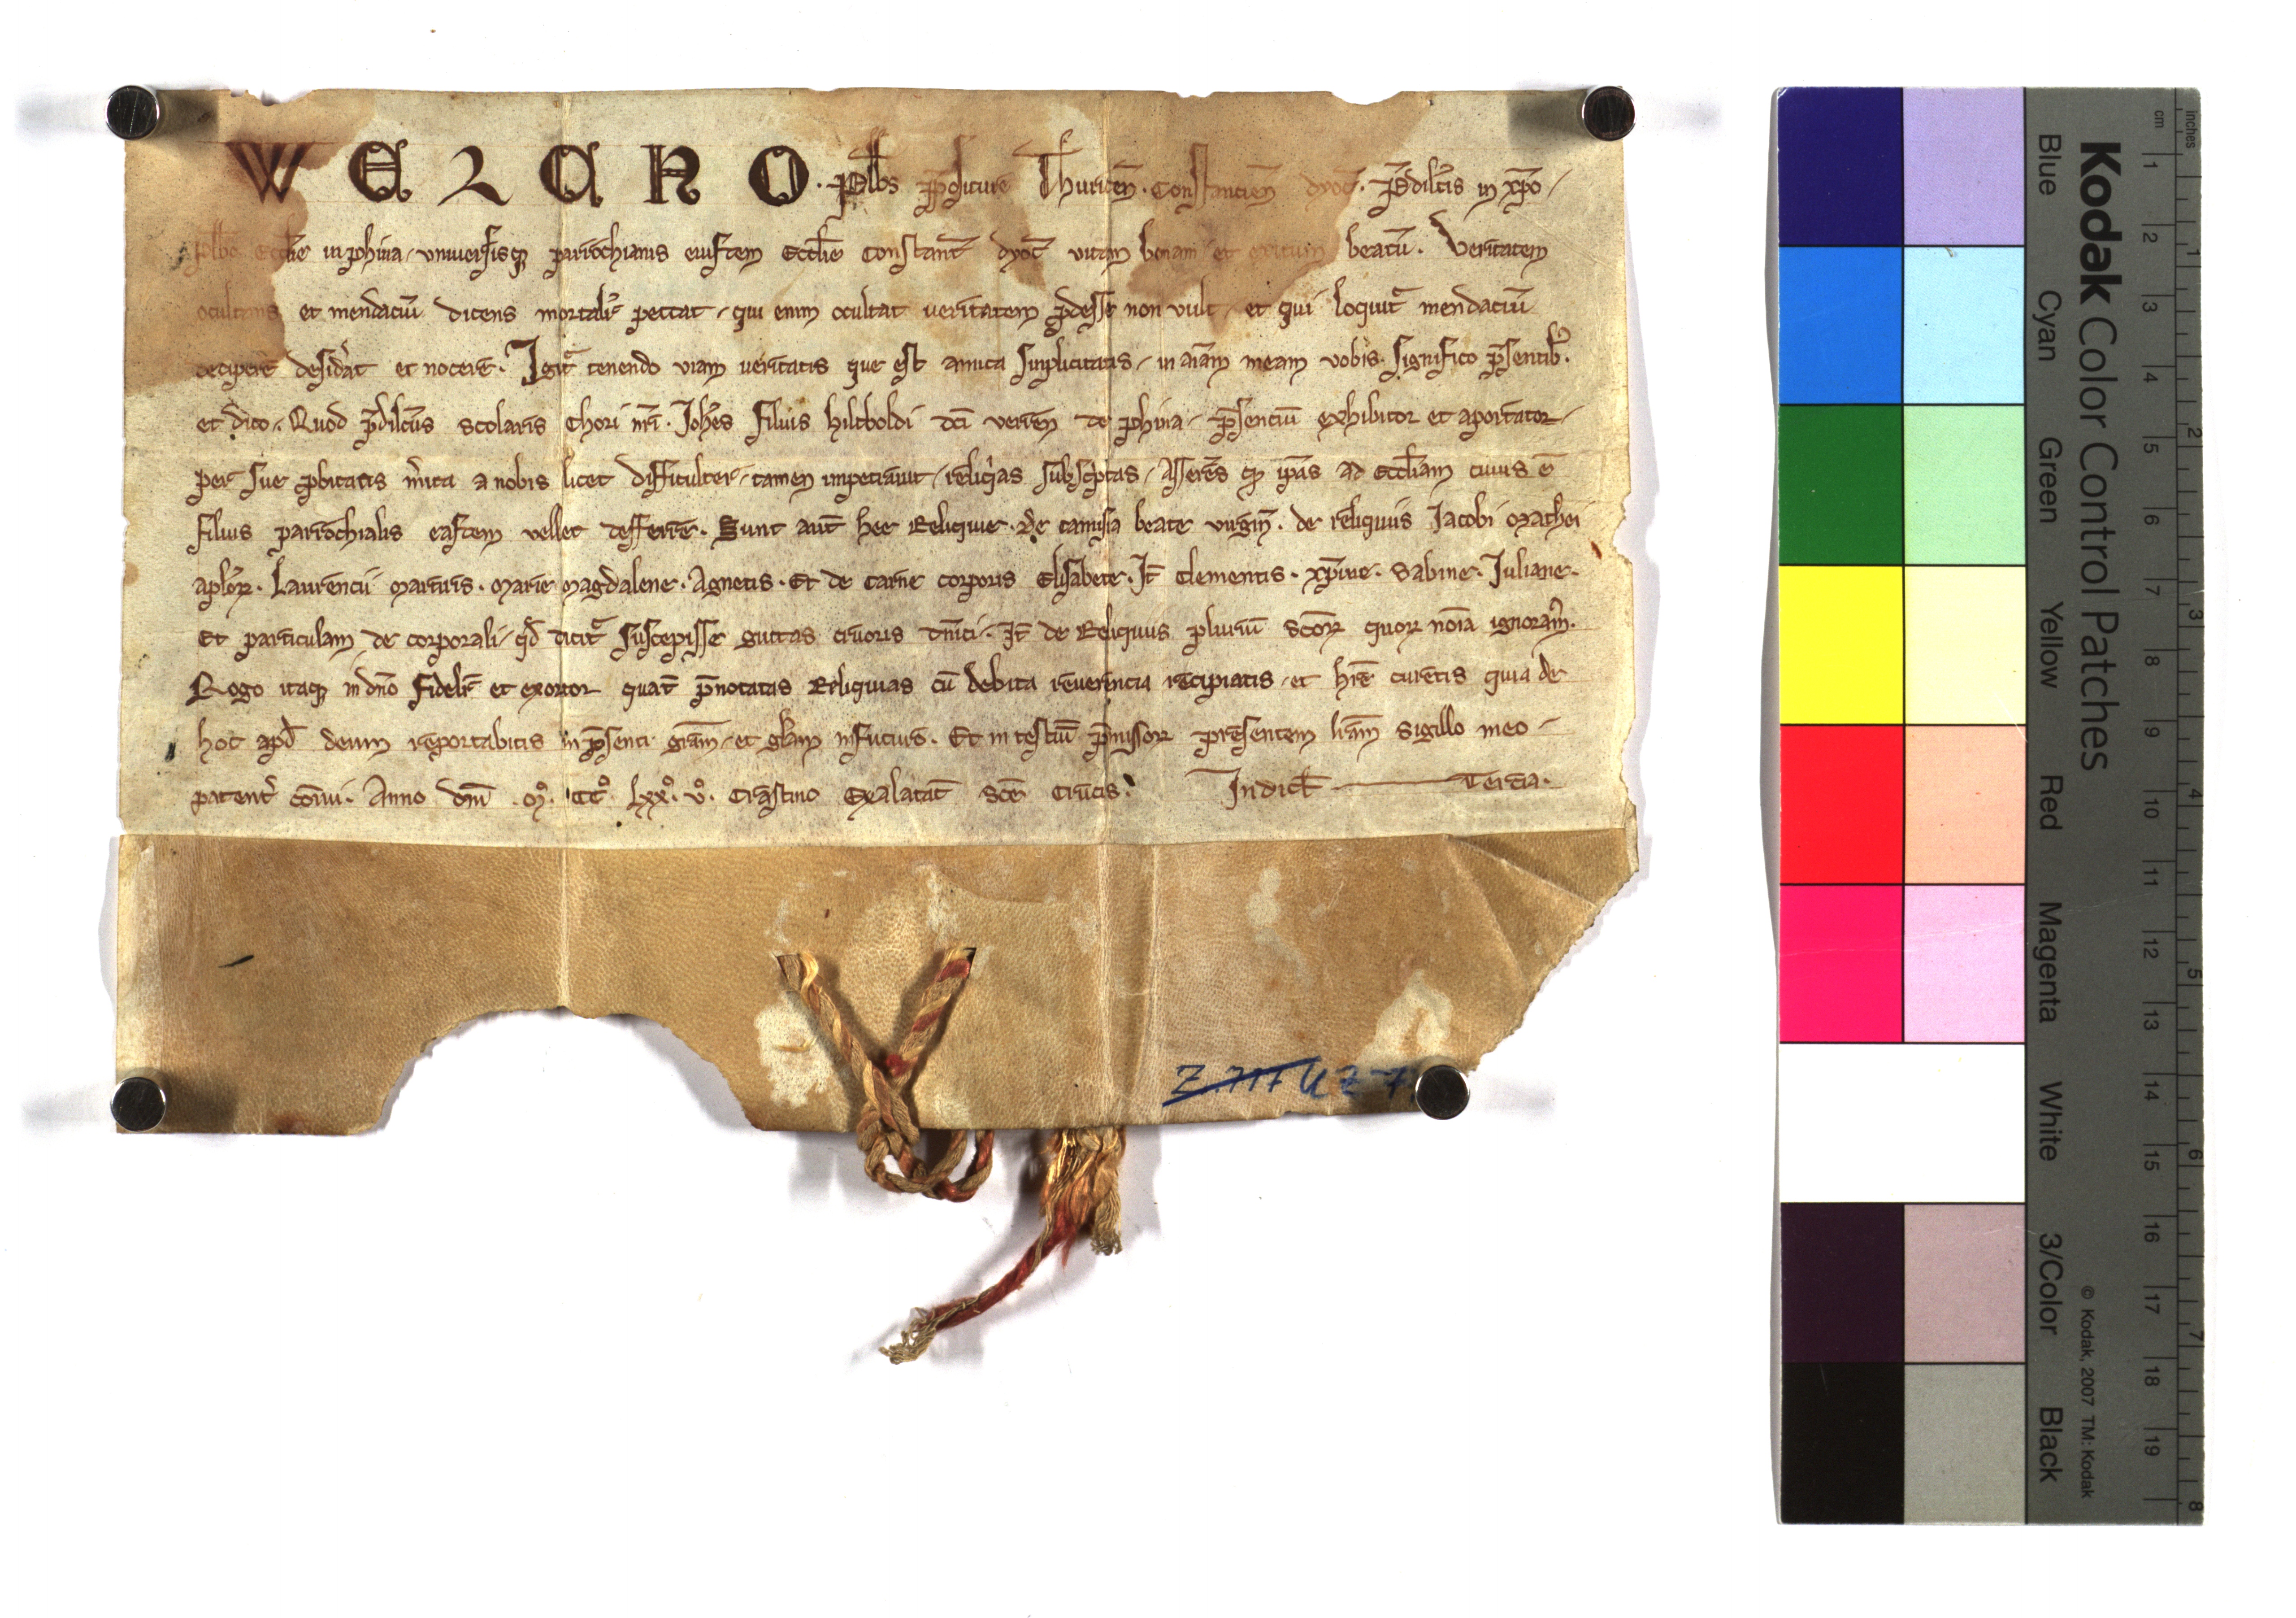 WERNO · Plb̄s p̄positure Thuricen̄ · Constancien̄ dyoc̄ · P̄dilc̄is in xp̄o /
plbō Eccl̄ie in phina / vniuersisqꝫ parrochianis eiusdem Eccl̄ie Constant̄ dyoc̄ vitam bonam et exitum beatū. Veritatem
ocultans et mendaciū dicens mortalit̄ peccat / qui enim ocultat veritatem p̄desse non vult / et qui loquit̄ mendaciū
decipere desid̄at et nocere. Igit̄ tenendo viam veritatis que est amica simplicitatis / in aīam meam vobis significo p̄sentib̄.
et dico. Quod p̄dilc̄us scolaris Chori nr̄i Joh̄es filius hiltboldi dc̄i verien de phina / p̄senciū exhibitor et aportator /
per sue p̄bitatis m̄ita a nobis licet difficulter / tamen impetrauit / reliqīas subsc̄ptas / Asserēs qꝫ ip̄as ad Eccl̄iam cuius ē
filius parrochialis easdem vellet defferre. Sunt aut̄ hee Reliquie. de camisia beate virgin̄. de reliquiis Jacobi Mathei
aplōꝝ. Laurencii Martiris. Marie Magdalene. Agnetis. Et de carne corporis Elisabete. It̄ Clementis. xp̄ine. Sabine. Juliane.
Et particulam de corporali / qd̄ dicit̄ suscepisse guttas cruoris dn̄ici. It̄ de Reliquiis pluriū Scōꝝ quoꝝ noīa ignoram̄.
Rogo itaqꝫ in dn̄o fidelit̄ et exortor quat̄ p̄notatas Reliquias cū debita reuerencia recipiatis / et hr̄e curetis quia de
hoc apd̄ deum reportabitis in p̄senti grām / et gl̄am in futuro. Et in testiū p̄missoꝝ presentem lr̄am sigillo meo /
patent̄ cōiui. Anno dn̄i .Mͦ. CCͦ. Lxxͦ. vͦ. Crastino Exalatat̄ Scē Crucis. Indict̄ — Tercia.
Z 717 UZ 7
Kodak Color Control Patches
Blue Cyan Green Yellow Red Magenta White 3/Color Black
© Kodak, 2007 TM: Kodak
cm 1 2 3 4 5 6 7 8 9 10 11 12 13 14 15 16 17 18 19
inches 1 2 3 4 5 6 7 8